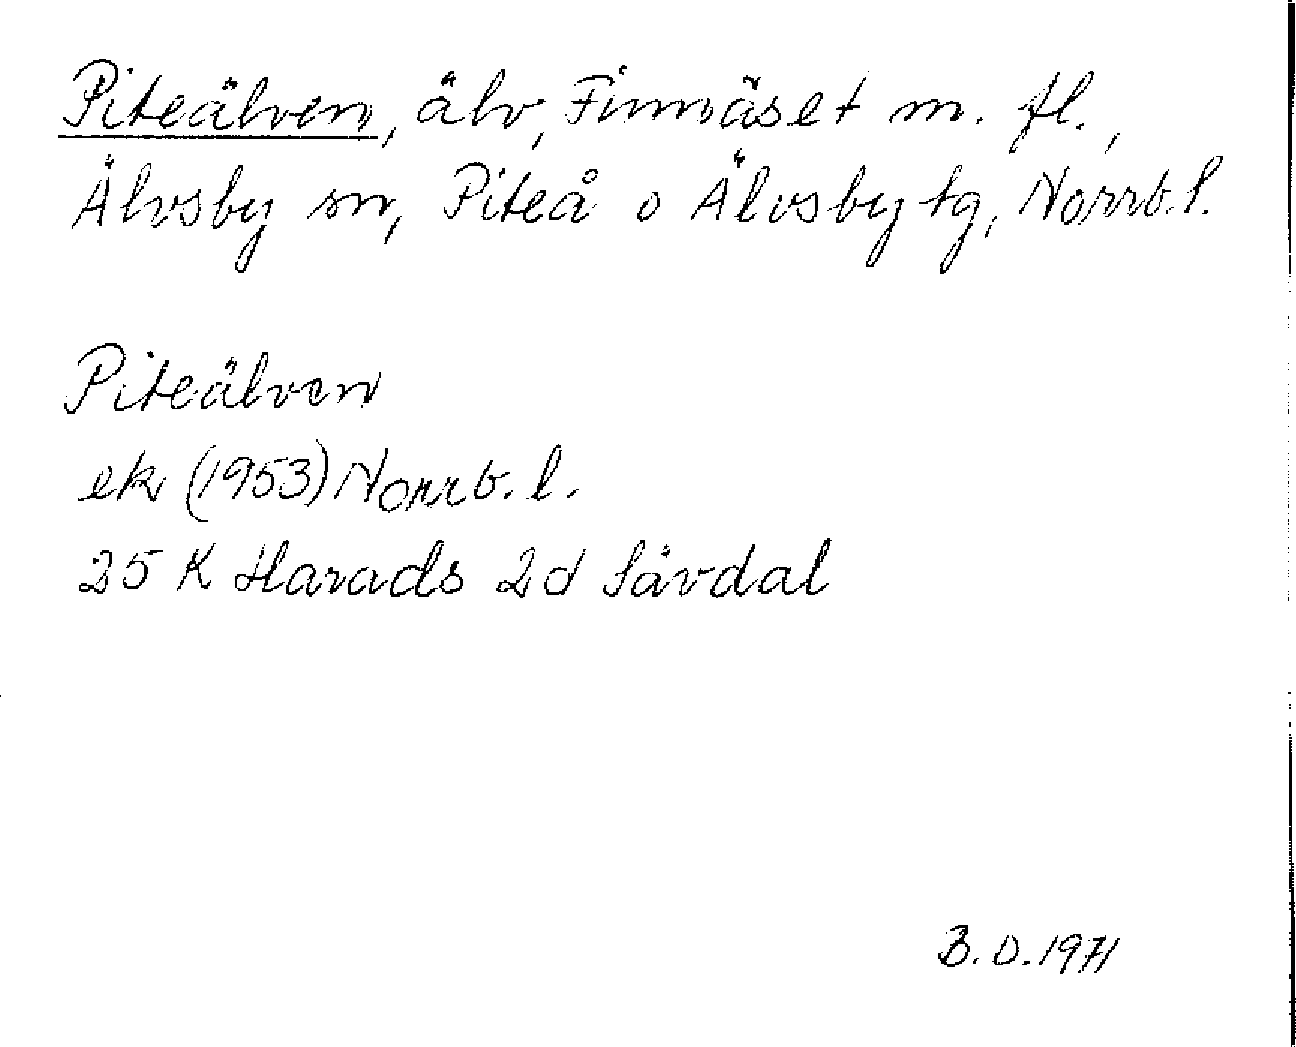 Piteälven, älv, Finnäset m. fl.,
Älvsby sn, Piteå o Älvsby tg, Norrb. l.
Piteälven
ek (1953) Norrb. l.
25 K Harads 2d Sävdal
B. D. 1971